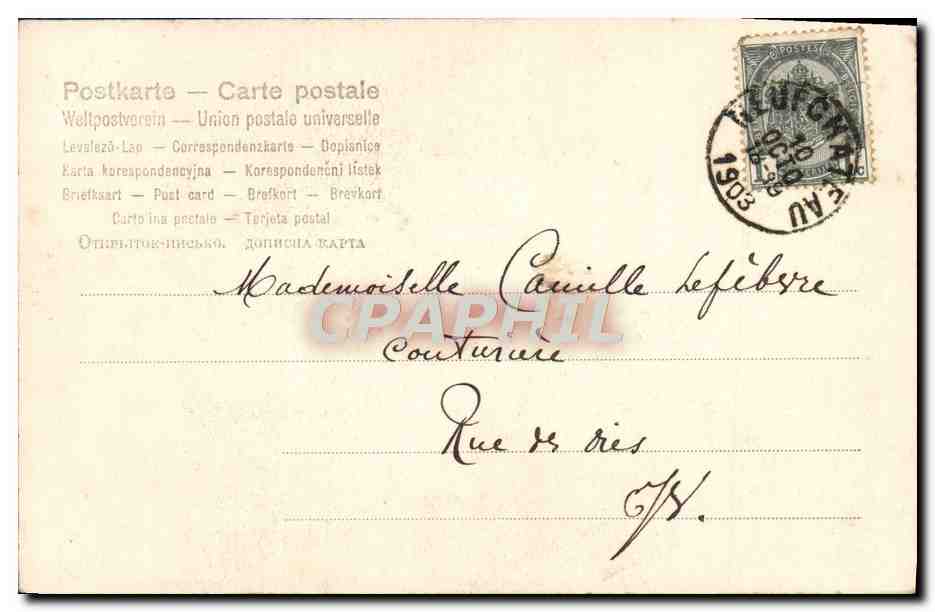 Postkarte — Carte postale
Weltpostverein — Union postale universelle
Levelező-Lap — Correspondenzkarte — Dopisnice
Karta korespondencyjna — Korespondenční lístek
Briefkaart — Post card — Brefkort — Brevkort
Cartolina postale — Tarjeta postal
Открытое-письмо. дописна-карта
POSTES
1 C
NEUFCHATEAU
10
OCTO
1903
Mademoiselle Camille Lefèbvre
CPAPHIL
couturière
Rue des
E/V.